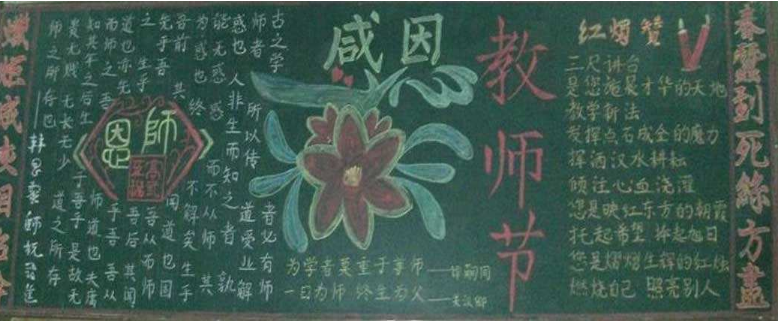 春蚕到死絲方盡
红烛赞
三尺讲台
是您施展才华的天地
教学新法
发挥点石成金的魔力
挥洒汗水耕耘
倾注心血浇灌
您是映红东方的朝霞
托起希望 捧起旭日
您是熠熠生辉的红烛
燃烧自己 照亮别人
教师节
感恩
为学者莫重于尊师——谭嗣同
一日为师 终生为父——关汉卿
古之学者必有师
师者 所以传道受业解
惑也 人非生而知之者 孰
能无惑 惑而不从师 其
为惑也 终不解矣 生乎
吾前 其闻道也固
先乎吾 吾从而师
之 生乎吾后 其闻
道也亦先于吾 吾从
而师之 吾师道也 夫庸
知其年之后生于吾乎 是故无
贵无贱 无长无少 道之所存
师之所存也
——韩愈 师说 节选
師恩